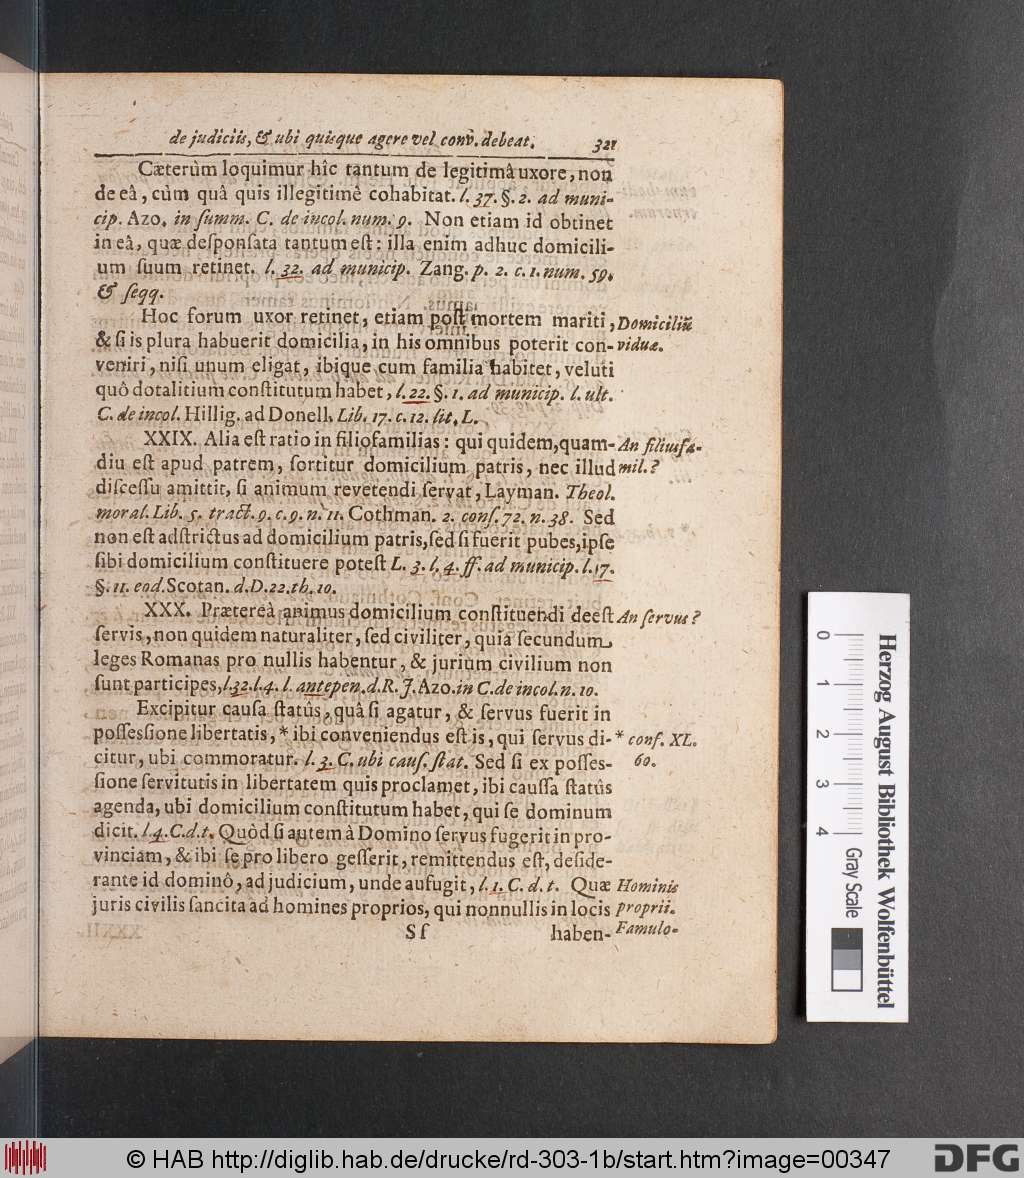 de judiciis, & ubi quisque agere vel conv̄. debeat. 321
Cæterùm loquimur hîc tantum de legitimâ uxore, non
de eâ, cùm quâ quis illegitimê cohabitat. l. 37. §. 2. ad muni-
cip. Azo, in ſumm. C. de incol. num. 9. Non etiam id obtinet
in eâ, quæ deſponſata tantum eſt: illa enim adhuc domicili-
um ſuum retinet. l. 32. ad municip. Zang. p. 2. c. 1. num. 59.
& ſeqq.
Hoc forum uxor retinet, etiam poſt mortem mariti, Domiciliū
& ſi is plura habuerit domicilia, in his omnibus poterit con- viduæ.
veniri, niſi unum eligat, ibique cum familia habitet, veluti
quô dotalitium conſtitutum habet, l. 22. §. 1. ad municip. l. ult.
C. de incol. Hillig. ad Donell. Lib. 17. c. 12. lit. L.
XXIX. Alia eſt ratio in filiofamilias: qui quidem, quam- An filiusfa-
diu eſt apud patrem, ſortitur domicilium patris, nec illud mil.?
diſceſſu amittit, ſi animum revetendi ſervat, Layman. Theol.
moral. Lib. 5. tract. 9. c. 9. n. 11. Cothman. 2. conſ. 72. n. 38. Sed
non eſt adſtrictus ad domicilium patris, ſed ſi fuerit pubes, ipſe
ſibi domicilium conſtituere poteſt L. 3. l. 4. ff. ad municip. l. 17.
§. 11. eod. Scotan. d. D. 22. th. 10.
XXX. Prætereà animus domicilium conſtituendi deeſt An ſervus?
ſervis, non quidem naturaliter, ſed civiliter, quia ſecundum
leges Romanas pro nullis habentur, & jurium civilium non
ſunt participes, l. 32. l. 4. l. antepen. d. R. J. Azo. in C. de incol. n. 10.
Excipitur cauſa ſtatûs, quâ ſi agatur, & ſervus fuerit in
poſſesſione libertatis, * ibi conveniendus eſt is, qui ſervus di- * conf. XL.
citur, ubi commoratur. l. 3. C. ubi cauſ. ſtat. Sed ſi ex poſſes- 60.
ſione ſervitutis in libertatem quis proclamet, ibi cauſſa ſtatûs
agenda, ubi domicilium conſtitutum habet, qui ſe dominum
dicit. l. 4. C. d. t. Quôd ſi autem à Domino ſervus fugerit in pro-
vinciam, & ibi ſe pro libero geſſerit, remittendus eſt, deſide-
rante id dominô, ad judicium, unde aufugit, l. 1. C. d. t. Quæ Hominis
juris civilis ſancita ad homines proprios, qui nonnullis in locis proprii.
Sſ haben- Famulo-
Herzog August Bibliothek Wolfenbüttel
0 1 2 3 4 Gray Scale
© HAB http://diglib.hab.de/drucke/rd-303-1b/start.htm?image=00347
DFG